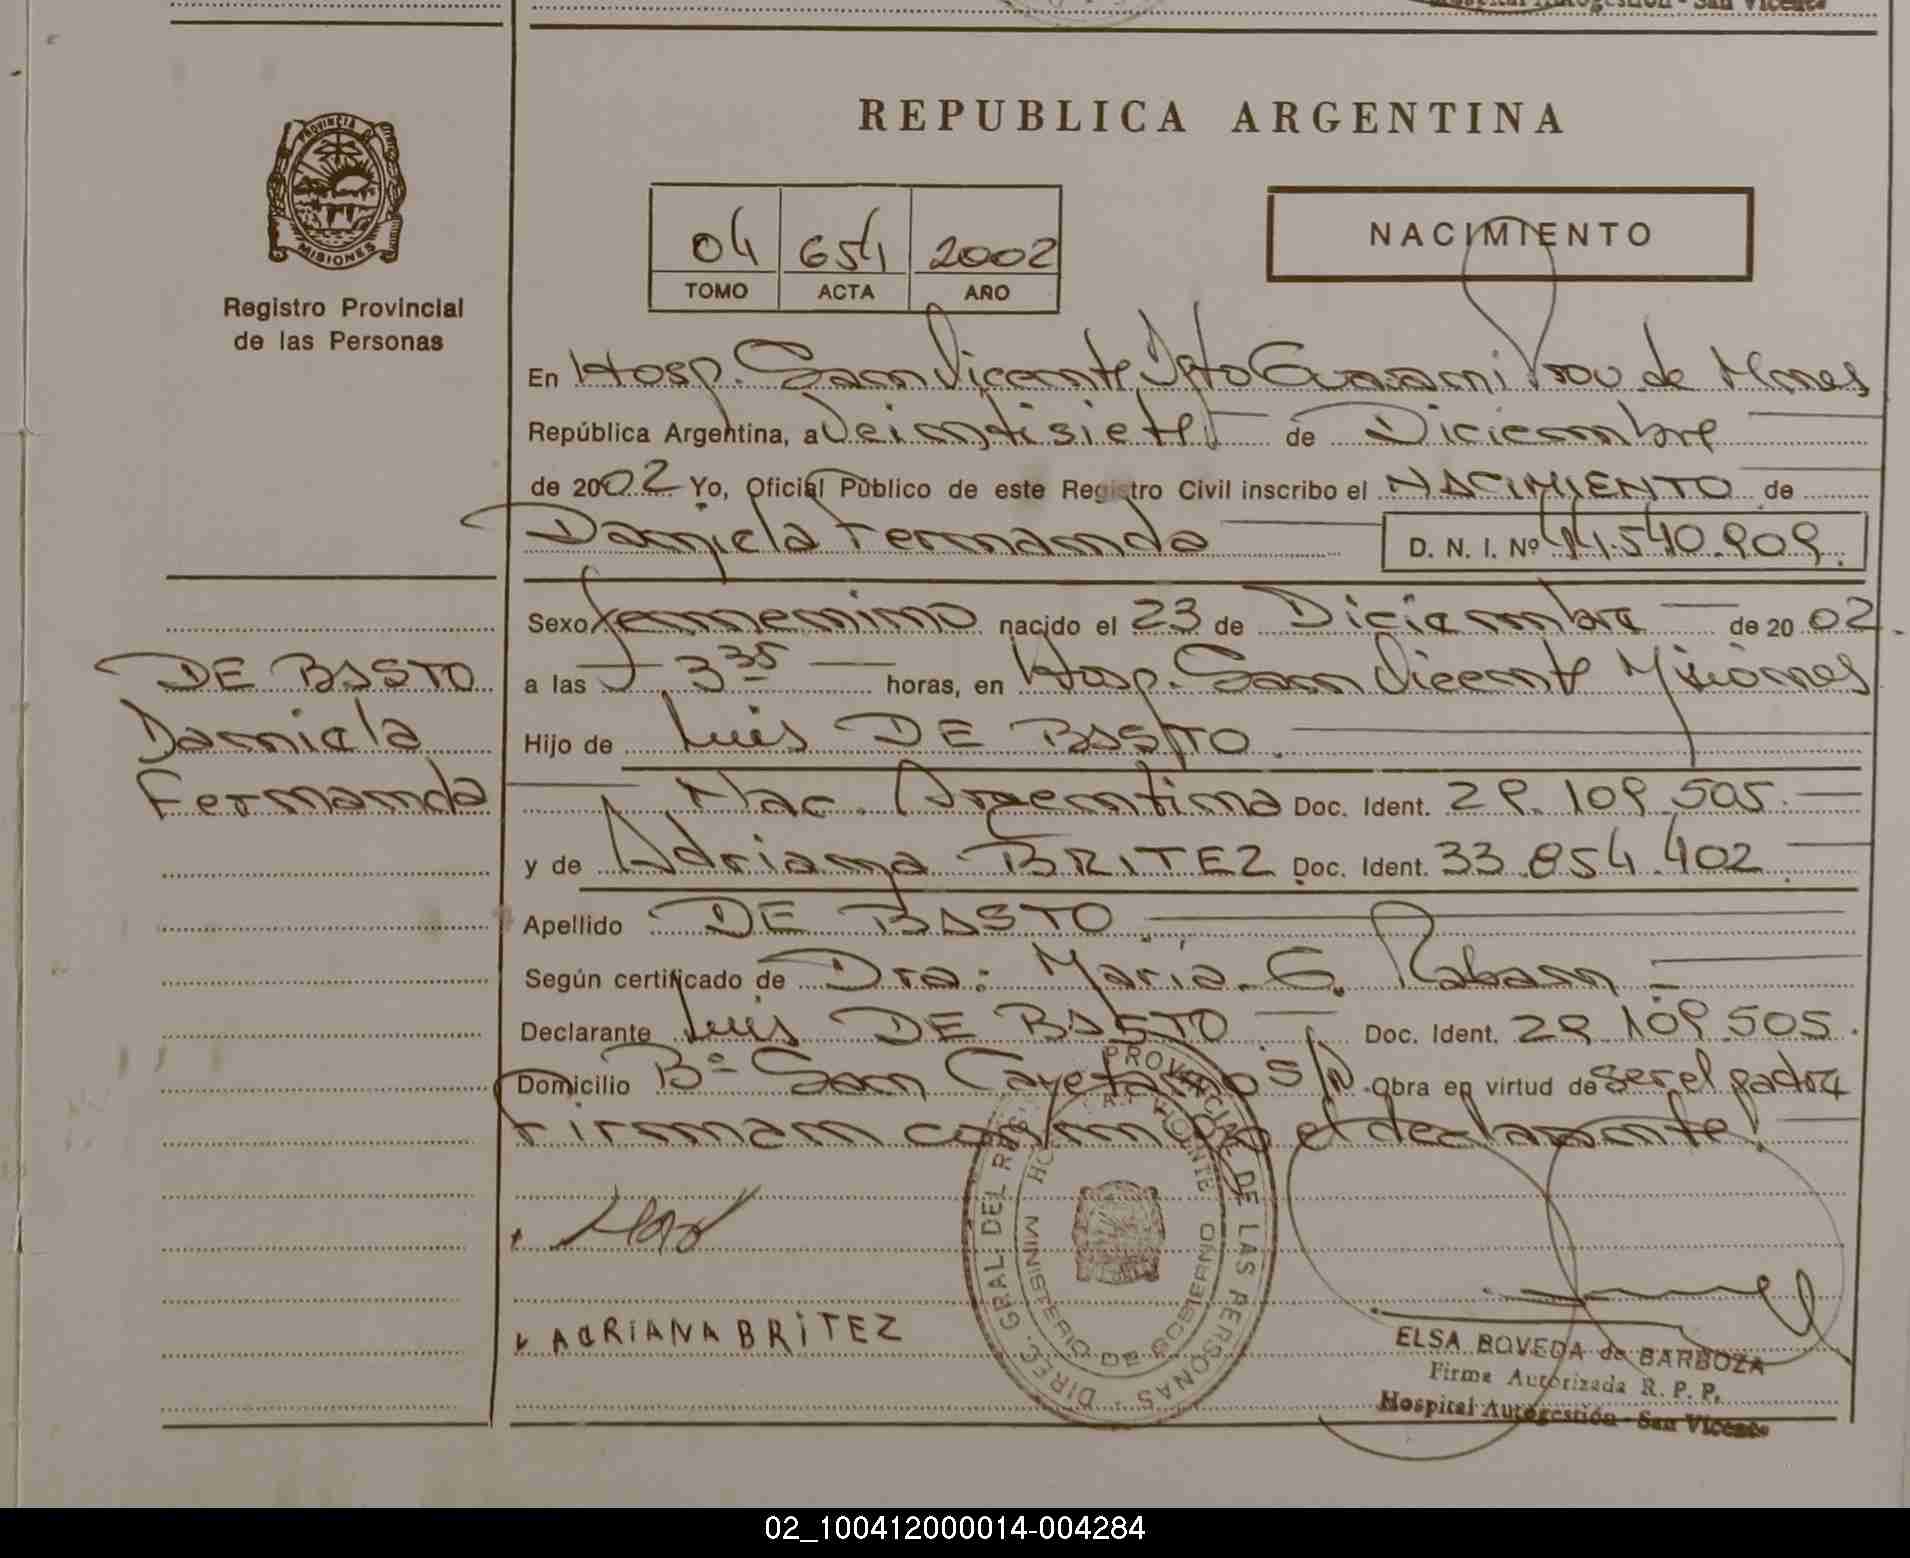 Hospital Autogestión - San Vicente
PROVINCIA DE
MISIONES
Registro Provincial
de las Personas
REPUBLICA ARGENTINA
04 654 2002
TOMO ACTA AÑO
NACIMIENTO
En Hosp. San Vicente Dpto Guarani Prov de Mnes
República Argentina, a Veintisiete de Diciembre
de 2002 Yo, Oficial Público de este Registro Civil inscribo el NACIMIENTO de
Daniela Fernanda D. N. I. Nº 44.540.909.
Sexo femenino nacido el 23 de Diciembre de 20 02.
a las 3 35 horas, en Hosp. San Vicente Misiones
Hijo de Luis DE BASTO.
Nac. Argentina Doc. Ident. 29.109.505.
y de Adriana BRITEZ Doc. Ident. 33.854.402.
Apellido DE BASTO
Según certificado de Dra: Maria. G. Rabann
Declarante Luis DE BASTO Doc. Ident. 29.109.505.
Domicilio Bº San Cayetano S/N. Obra en virtud de ser el padre
Firman conmigo el declarante.
DE BASTO
Daniela
Fernanda
ADRIANA BRITEZ
DIREC. GRAL. DEL REG. PROVINCIAL DE LAS PERSONAS
MINISTERIO DE GOBIERNO
ELSA BOVEDA de BARBOZA
Firma Autorizada R. P. P.
Hospital Autogestión - San Vicente
02_100412000014-004284